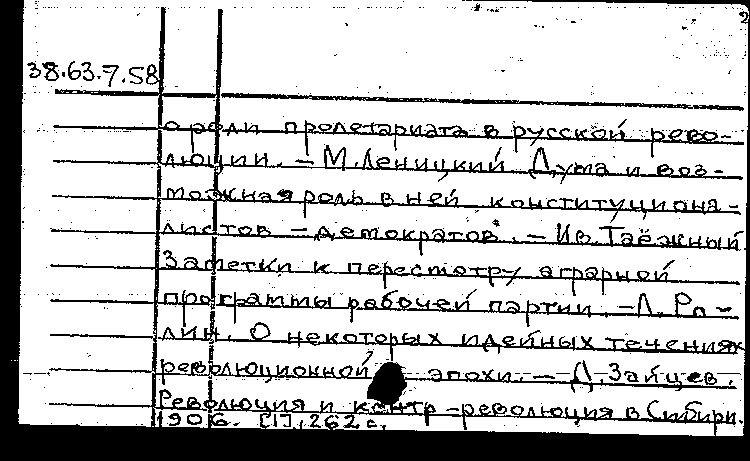 2
38.63.7.58
о роли пролетариата в русской рево-
люции. – М. Леницкий Дума и воз-
можная роль в ней конституциона-
листов – демократов. – Ив. Таёжный
Заметки к пересмотру аграрной
программы рабочей партии. – Л. Ро-
лин. О некоторых идейных течениях
революционной эпохи. – Д. Зайцев.
Революция и контр-революция в Сибири.
1906. [1], 262 с.